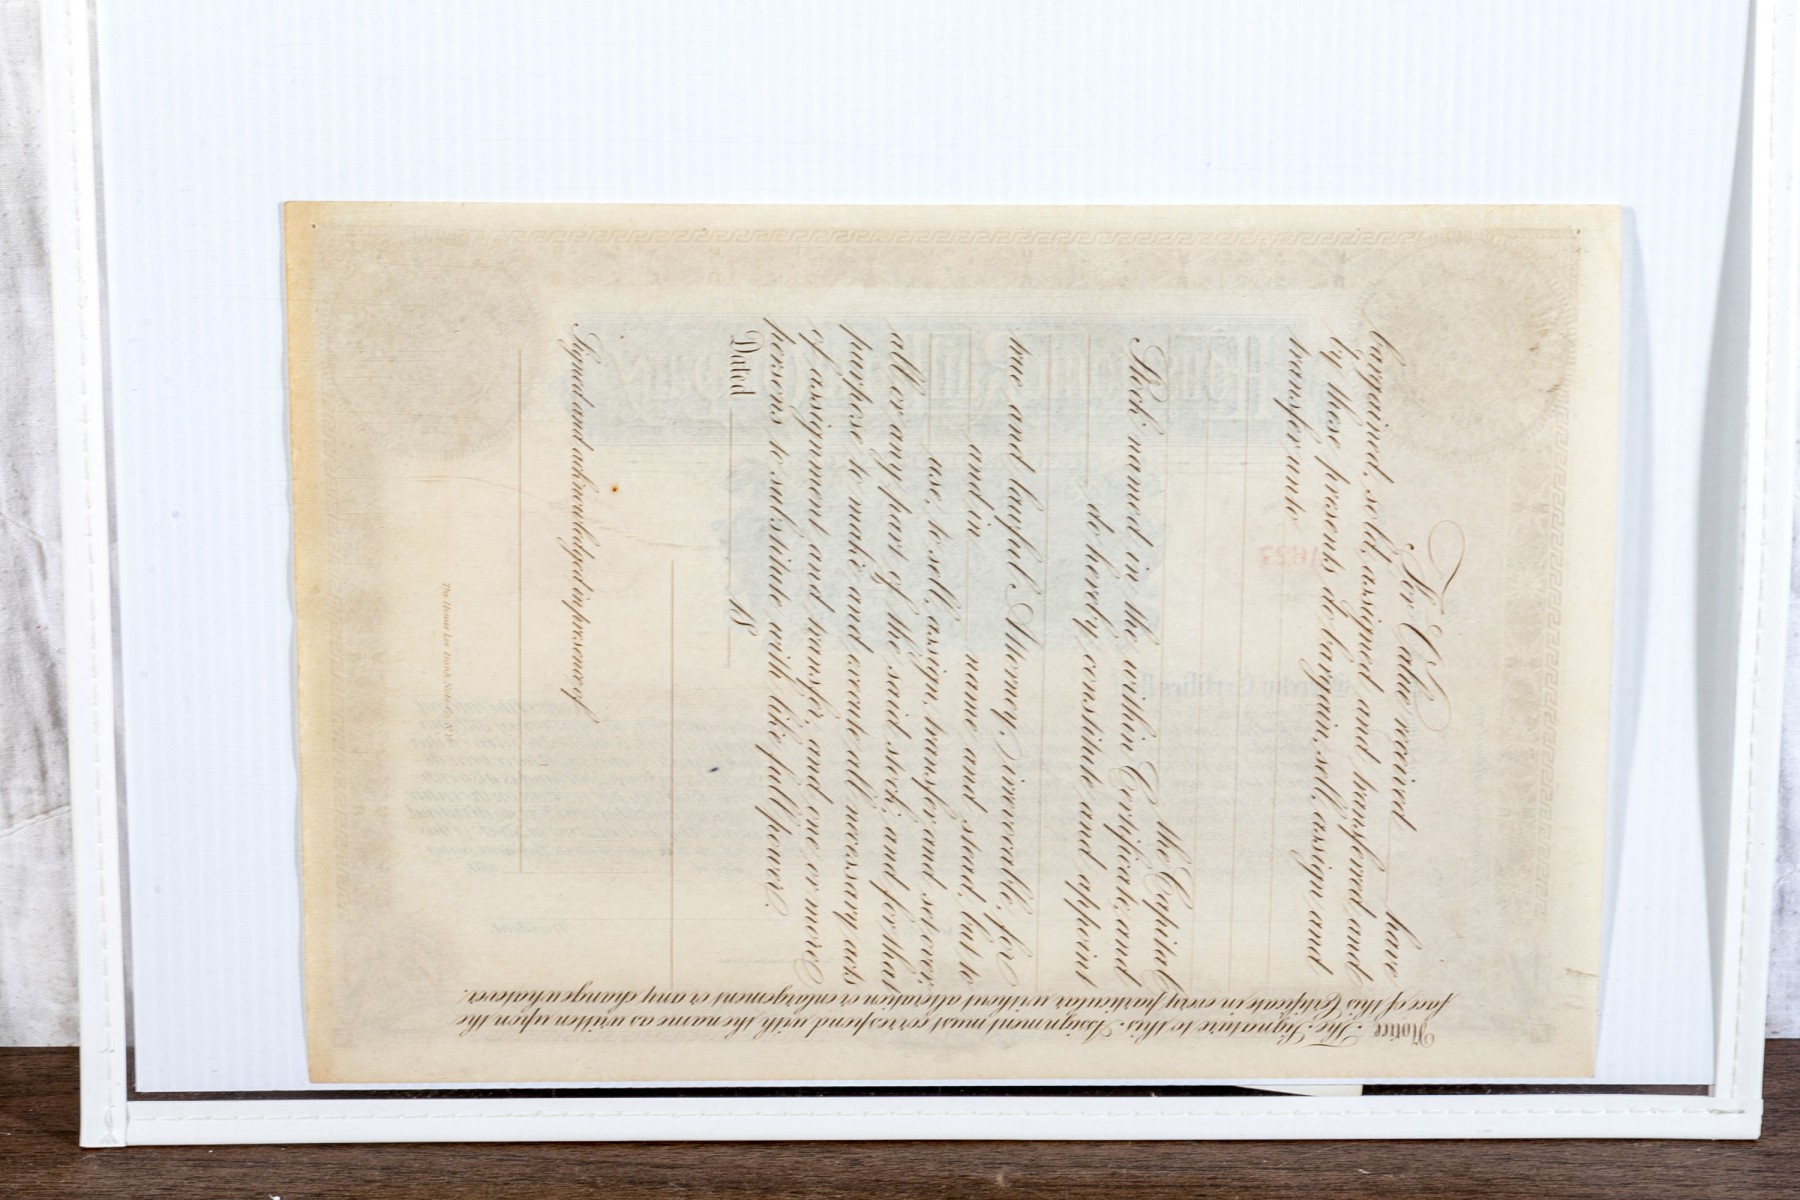 For Value received have
bargained, sold, assigned and transferred and
by these presents do bargain, sell, assign and
transfer unto
the Capital
Stock named in the within Certificate, and
do hereby constitute and appoint
true and lawful Attorney, irrevocable for
and in name and stead, but to
use, to sell, assign, transfer and set over,
all or any part of the said stock, and for that
purpose to make and execute all necessary acts
of assignment and transfer, and one or more
persons to substitute with like full power.
Dated 18
Signed and acknowledged in presence of
The Homer Lee Bank Note Co. N.Y.
Notice. The Signature to this Assignment must correspond with the name as written upon the
face of this Certificate, in every particular without alteration or enlargement or any change whatever.
1627